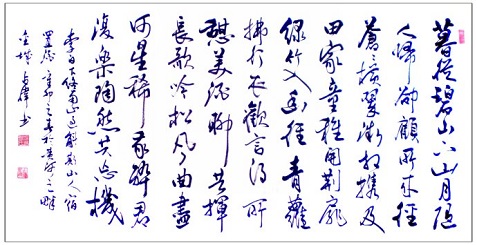 暮從碧山下山月隨
人歸卻顧所來徑
蒼蒼橫翠微相攜及
田家童稚開荊扉
綠竹入幽徑青蘿
拂行衣歡言得所
憩美酒聊共揮
長歌吟松風曲盡
河星稀我醉君
復樂陶然共忘機
李白下終南山過斛斯山人宿
置酒之春於黃河之畔
金城書